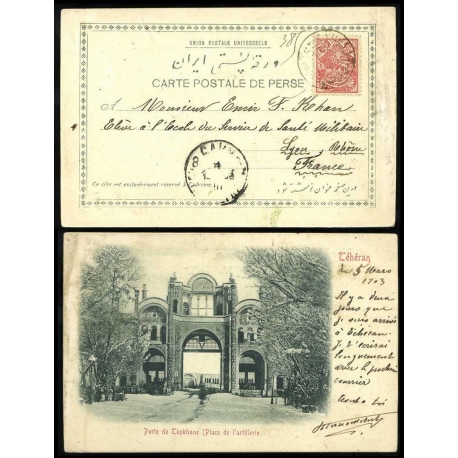 UNION POSTALE UNIVERSELLE
ورقه پستی ایران
CARTE POSTALE DE PERSE
385
A Monsieur Emir F. Khan
Elève à l'Ecole du Service de Santé Militaire
Lyon, Rhône
France
Ce côté est exclusivement réservé à l'adresse
Téhéran
le 5 Mars
1903
Il y a deux
jours que
je suis arrivé
à Téhéran.
Je t'écrirai
longuement
avec le prochain
courrier
Porte de Topkhane (Place de l'artillerie